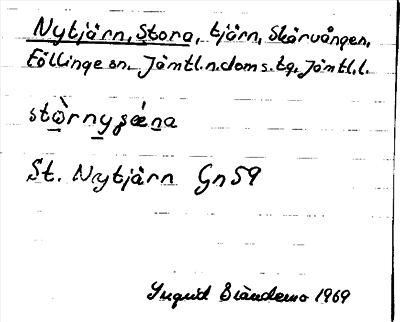 Nytjärn, Stora, tjärn, Skärvången,
Föllinge sn. Jämtl. n. doms. tg. Jämtl. l.
St. Nytjärn Gn 59
1969